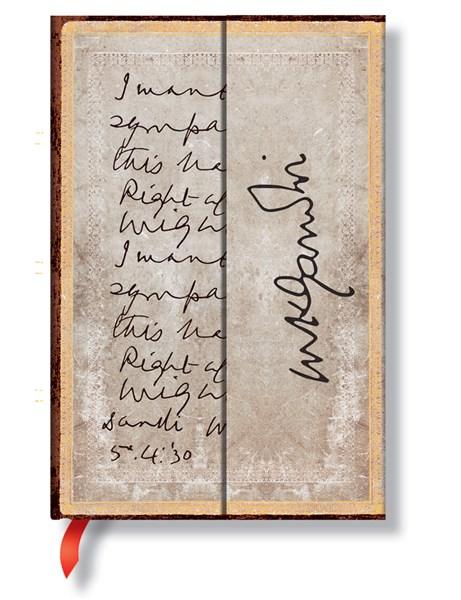 I want
sympa
this ba
Right ag
Migh
I want
sympa
this ba
Right ag
Migh
Sandi M
5.4.'30
MKGandhi